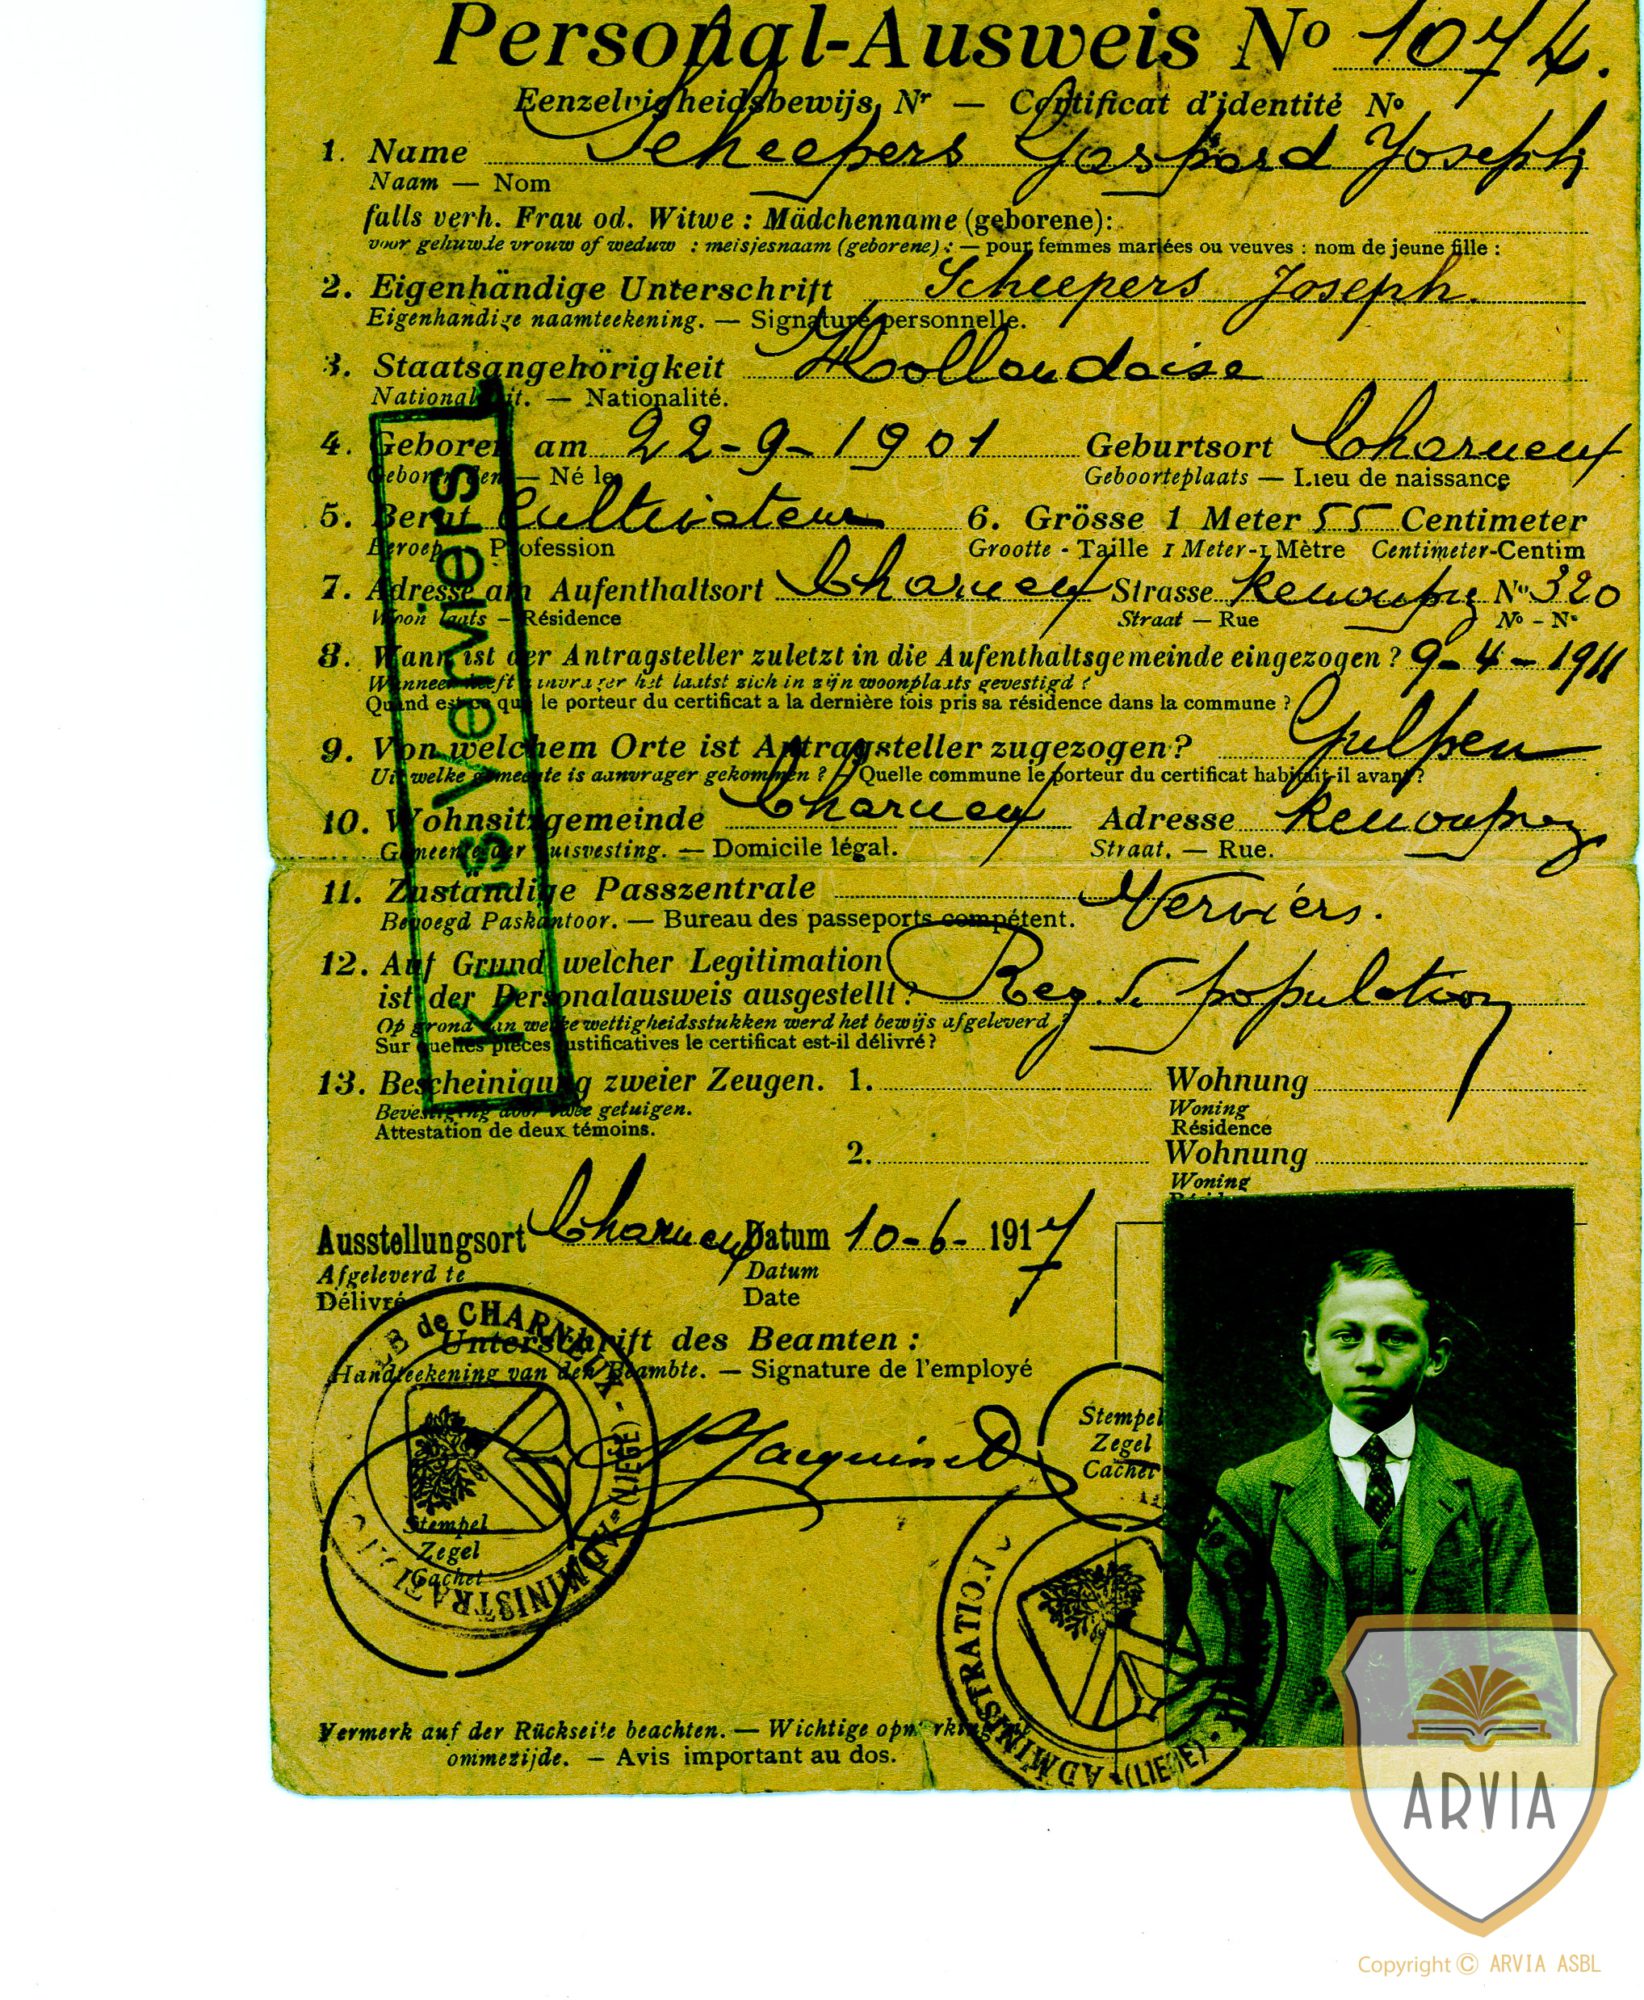 Personal-Ausweis Nº 1074.
Eenzelvigheidsbewijs, Nr — Certificat d'identité Nº
1. Name Scheepers Gaspard Joseph
Naam — Nom
falls verh. Frau od. Witwe : Mädchenname (geborene):
voor gehuwde vrouw of weduw : meisjesnaam (geborene) : — pour femmes mariées ou veuves : nom de jeune fille :
2. Eigenhändige Unterschrift Scheepers Joseph.
Eigenhandige naamteekening. — Signature personnelle.
3. Staatsangehörigkeit Hollandaise
Nationaliteit. — Nationalité.
4. Geboren am 22-9-1901 Geburtsort Charneux
Geboren den — Né le Geboorteplaats — Lieu de naissance
5. Beruf Cultivateur 6. Grösse 1 Meter 55 Centimeter
Beroep Profession Grootte - Taille 1 Meter-1 Mètre Centimeter-Centim
7. Adresse am Aufenthaltsort Charneux Strasse Renouprez Nº 320
Woonplaats — Résidence Straat — Rue Nº - Nº
8. Wann ist der Antragsteller zuletzt in die Aufenthaltsgemeinde eingezogen ? 9-4-1911
Wanneer heeft aanvrager het laatst zich in zijn woonplaats gevestigd ?
Quand est-ce que le porteur du certificat a la dernière fois pris sa résidence dans la commune ?
9. Von welchem Orte ist Antragsteller zugezogen? Gulpen
Uit welke gemeente is aanvrager gekommen ? — Quelle commune le porteur du certificat habitait-il avant ?
10. Wohnsitzgemeinde Charneux Adresse Renouprez
Gemeente der huisvesting. — Domicile légal. Straat. — Rue.
11. Zuständige Passzentrale Verviers.
Bevoegd Paskantoor. — Bureau des passeports compétent.
12. Auf Grund welcher Legitimation
ist der Personalausweis ausgestellt? Reg. population
Op grond van welke wettigheidsstukken werd het bewijs afgeleverd ?
Sur quelles pièces justificatives le certificat est-il délivré ?
13. Bescheinigung zweier Zeugen. 1. Wohnung
Bevestiging door twee getuigen. Woning
Attestation de deux témoins. Résidence
2. Wohnung
Woning
Kr's Verviers
Ausstellungsort Charneux Datum 10-6-1917
Afgeleverd te Datum
Délivré Date
Unterschrift des Beamten :
Handteekening van den Beambte. — Signature de l'employé
de CHARNEUX - (LIEGE) - ADMINISTRATION
Jacquinet
Stempel
Zegel
Cachet
Stempel
Zegel
Cachet
ADMINISTRATION
(LIEGE)
Vermerk auf der Rückseite beachten. — Wichtige opmerking
ommezijde. — Avis important au dos.
ARVIA
Copyright © ARVIA ASBL